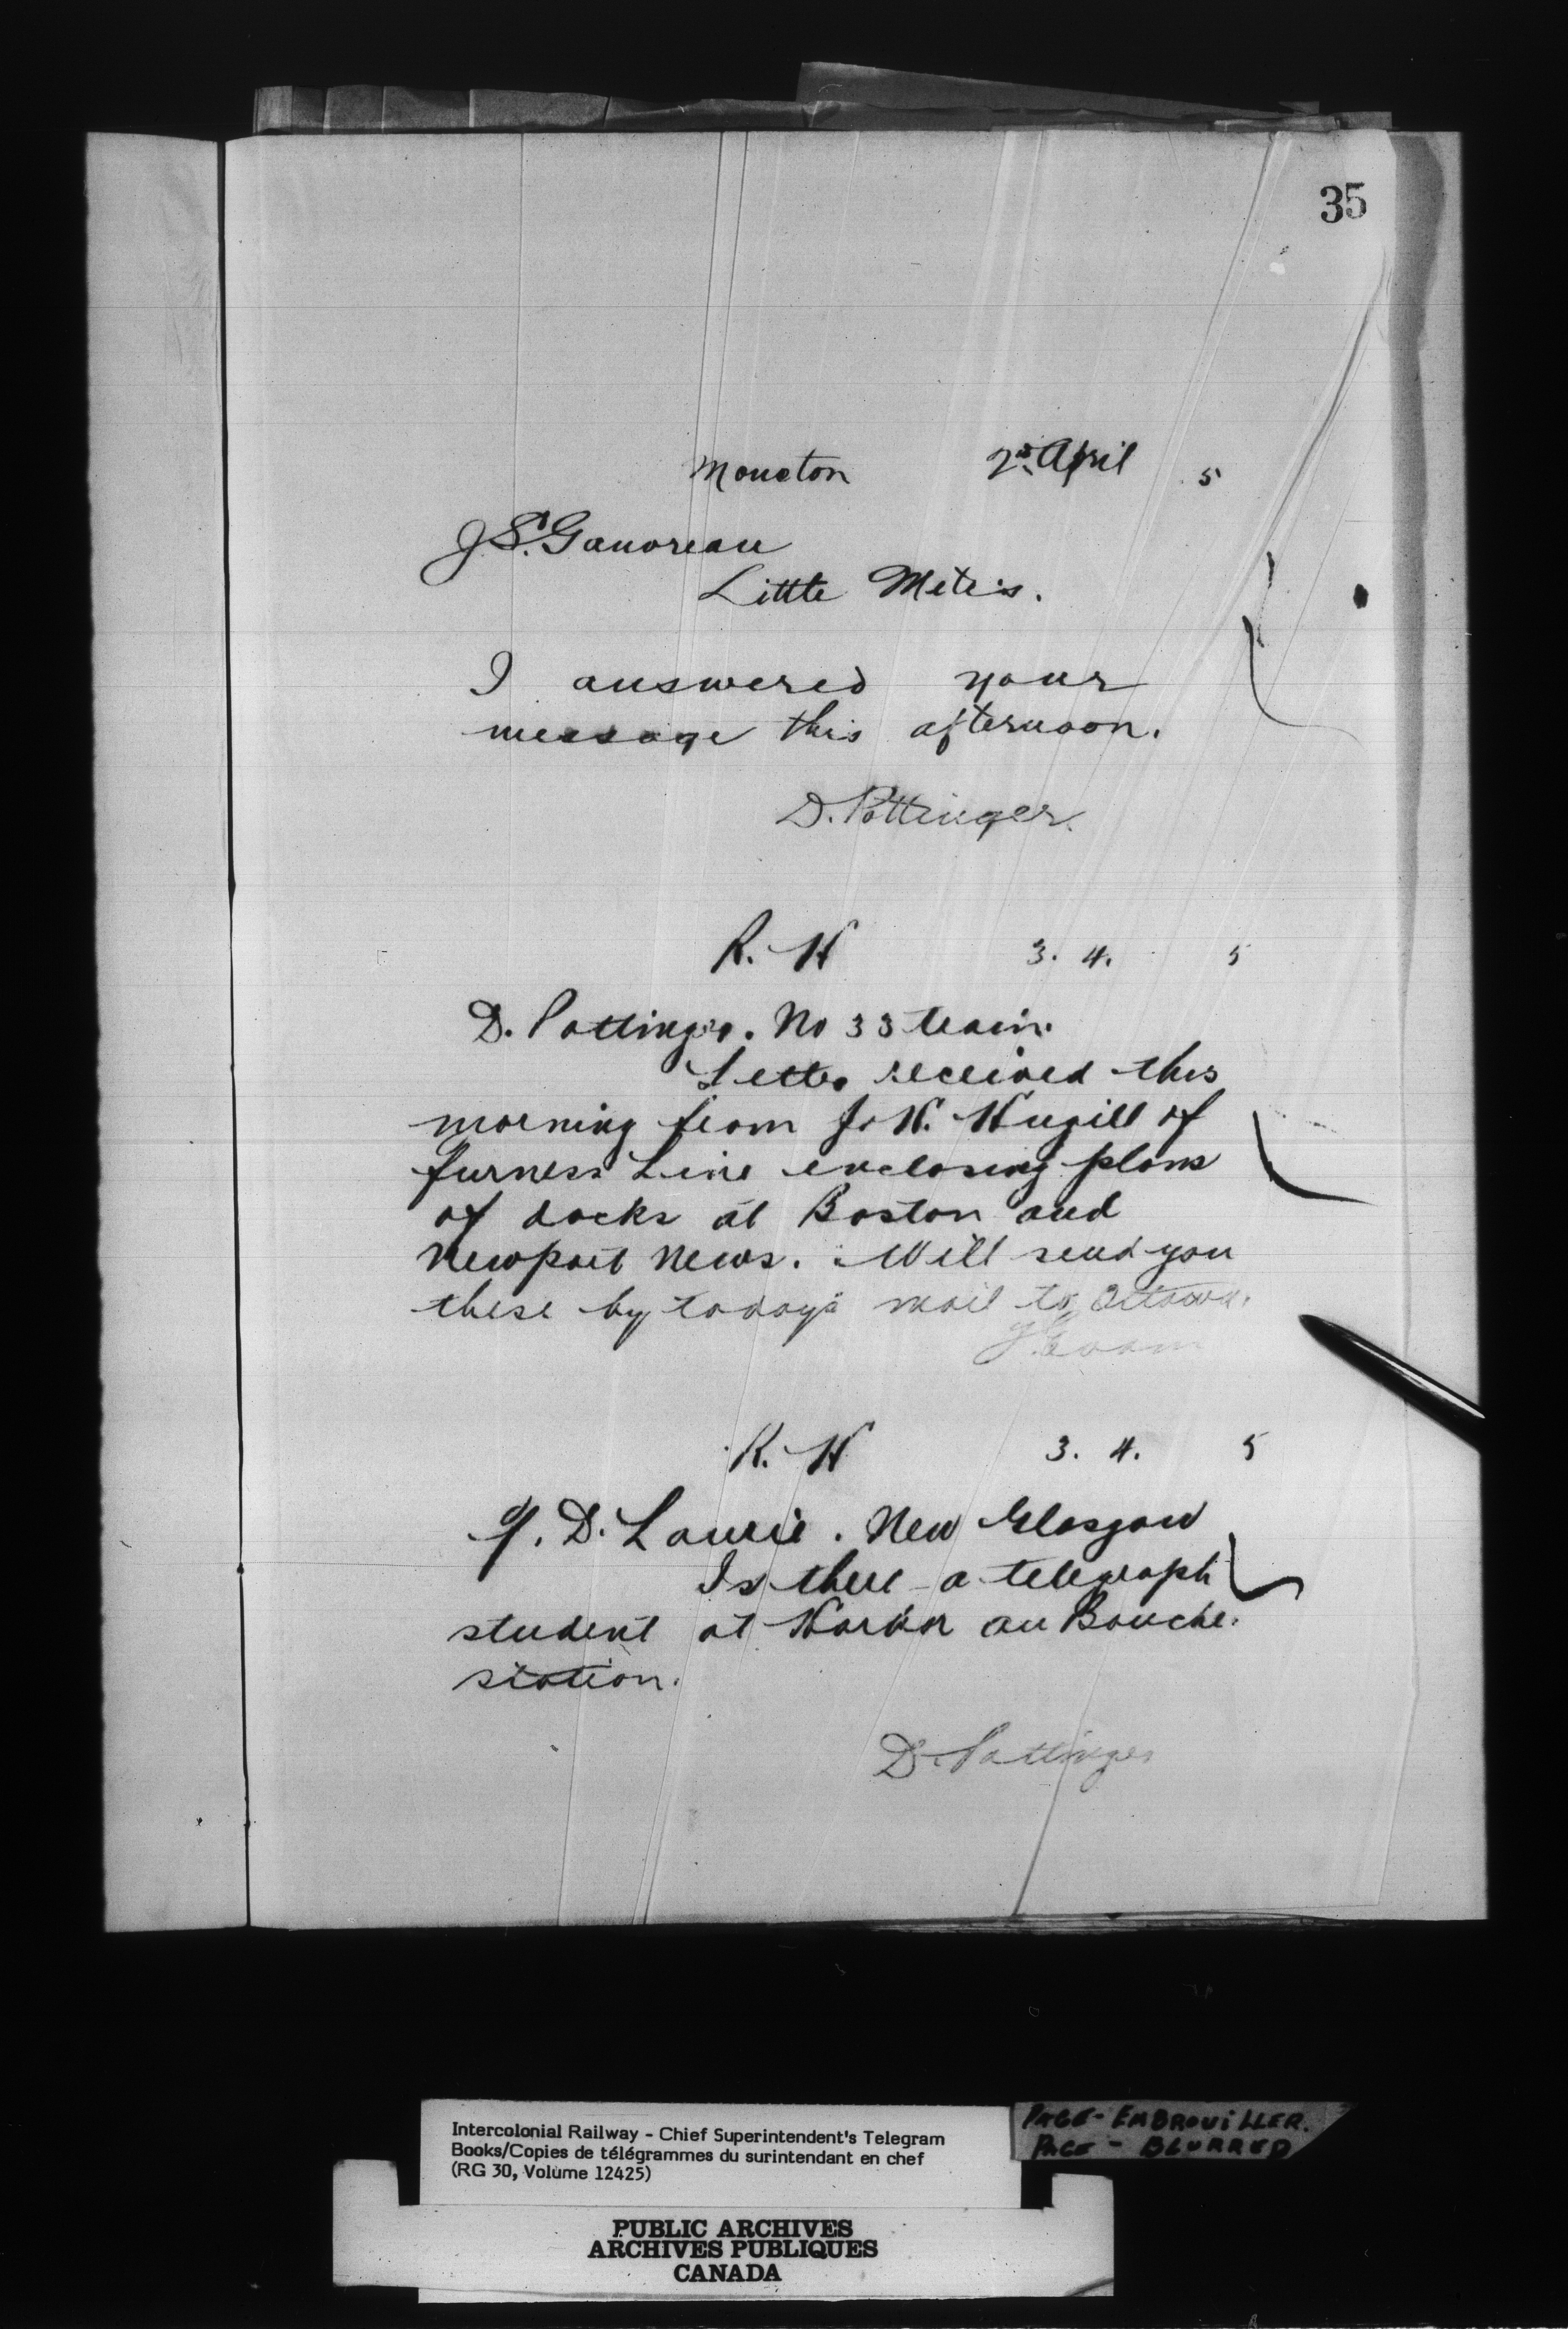 35
Moncton 2nd April 5
J.S. Gauvreau
Little Metis.
I answered your
message this afternoon.
D. Pottinger.
R. H 3. 4. 5
D. Pottinger. No 33 train.
Letter received this
morning from J. H. Hugill of
Furness Line enclosing plans
of docks at Boston and
Newport News. Will send you
these by todays mail to Ottawa.
R. H 3. 4. 5
Y. D. Laurie. New Glasgow
Is there a telegraph
student at Harbor au Bouche
station.
D. Pottinger
Intercolonial Railway - Chief Superintendent's Telegram
Books/Copies de télégrammes du surintendant en chef
(RG 30, Volume 12425)
PAGE - EMBROUILLER.
PAGE - BLURRED
PUBLIC ARCHIVES
ARCHIVES PUBLIQUES
CANADA